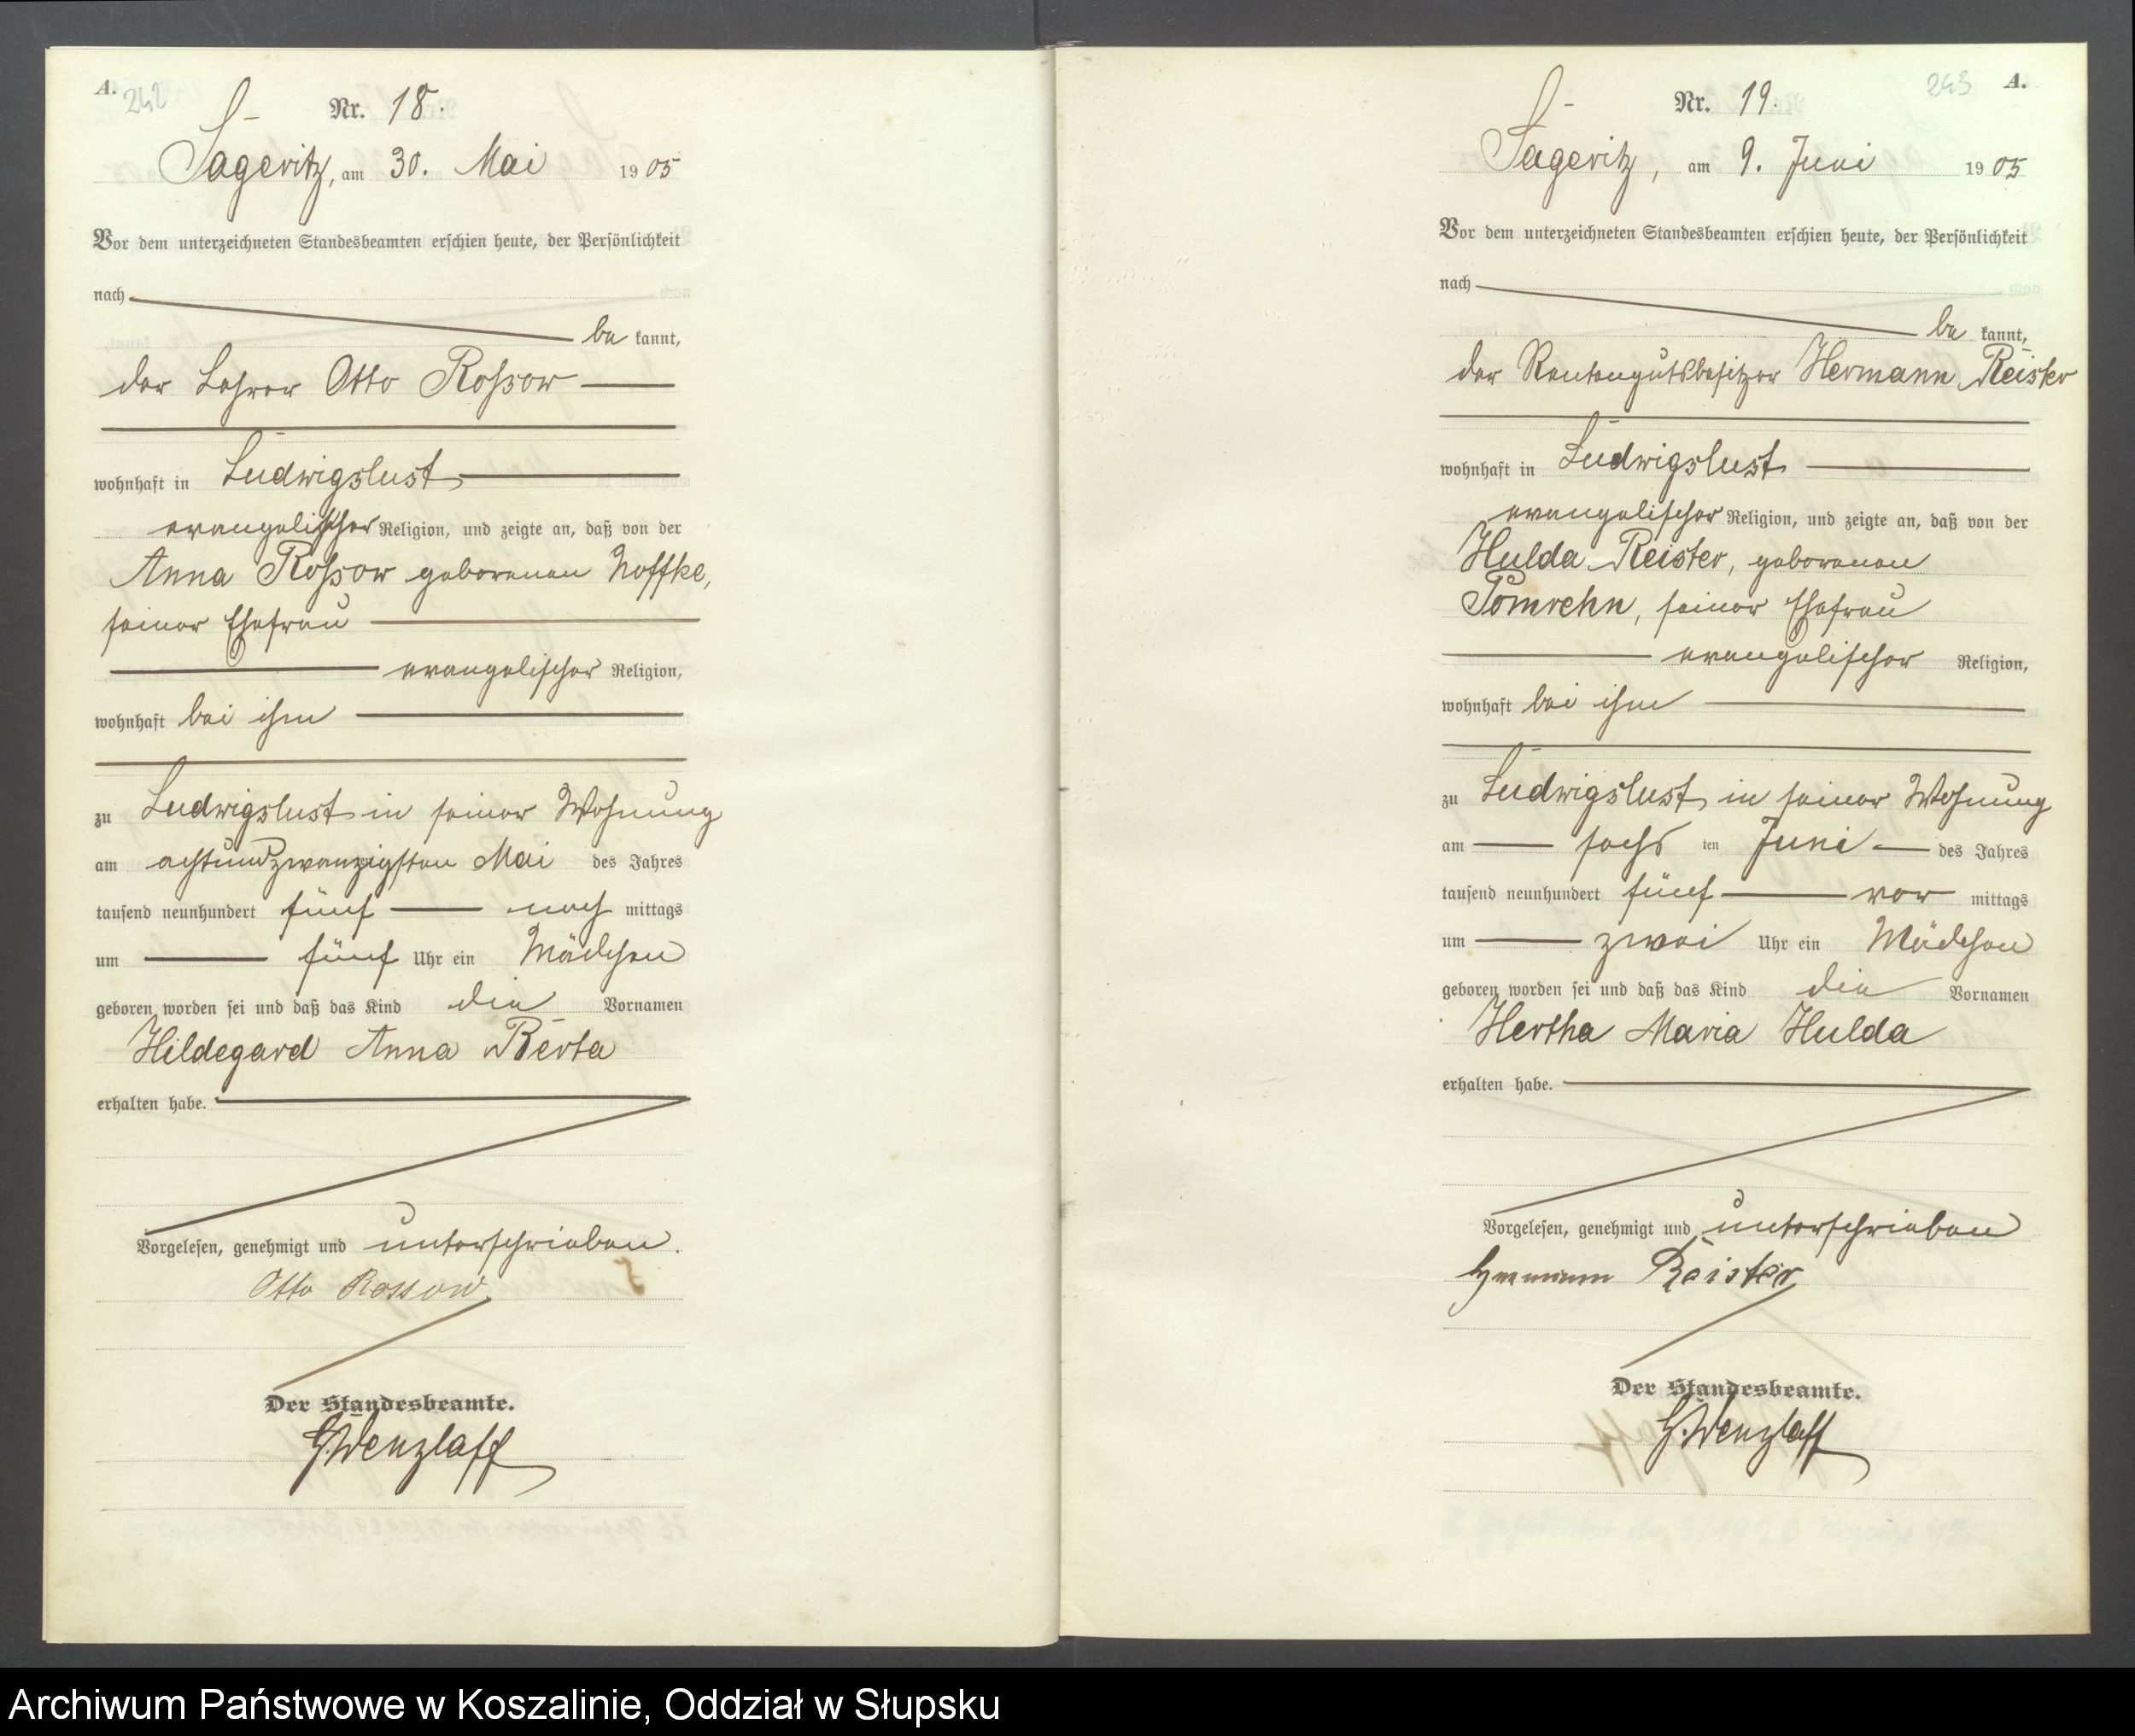 A.
242
Nr. 18.
Sageritz, am 30. Mai 1905
Vor dem unterzeichneten Standesbeamten erschien heute, der Persönlichkeit
nach
be kannt,
der Lehrer Otto Roßow
wohnhaft in Ludwigslust
evangelischer Religion, und zeigte an, daß von der
Anna Roßow geborenen Noffke,
seiner Ehefrau
evangelischer Religion,
wohnhaft bei ihm
zu Ludwigslust in seiner Wohnung
am achtundzwanzigsten Mai des Jahres
tausend neunhundert fünf nach mittags
um fünf Uhr ein Mädchen
geboren worden sei und daß das Kind die Vornamen
Hildegard Anna Berta
erhalten habe.
Vorgelesen, genehmigt und unterschrieben.
Otto Rossow
Der Standesbeamte.
G. Wenzlaff
243 A.
Nr. 19.
Sageritz, am 9. Juni 1905
Vor dem unterzeichneten Standesbeamten erschien heute, der Persönlichkeit
nach
be kannt,
der Rentengutsbesitzer Hermann Reister
wohnhaft in Ludwigslust
evangelischer Religion, und zeigte an, daß von der
Hulda Reister, geborenen
Pomrehn, seiner Ehefrau
evangelischer Religion,
wohnhaft bei ihm
zu Ludwigslust in seiner Wohnung
am sechs ten Juni des Jahres
tausend neunhundert fünf vor mittags
um zwei Uhr ein Mädchen
geboren worden sei und daß das Kind die Vornamen
Hertha Maria Hulda
erhalten habe.
Vorgelesen, genehmigt und unterschrieben
Hermann Reister
Der Standesbeamte.
G. Wenzlaff
Archiwum Państwowe w Koszalinie, Oddział w Słupsku